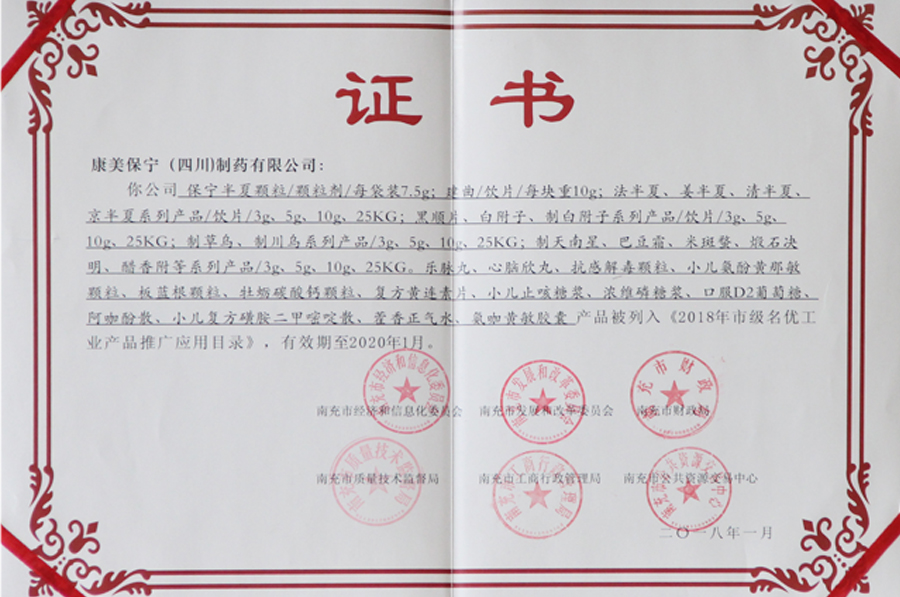 证书
康美保宁（四川)制药有限公司：
你公司 保宁半夏颗粒/颗粒剂/每袋装7.5g；建曲/饮片/每块重10g；法半夏、姜半夏、清半夏、
京半夏系列产品/饮片/3g、5g、10g、25KG；黑顺片、白附子、制白附子系列产品/饮片/3g、5g、
10g、25KG；制草乌、制川乌系列产品/3g、5g、10g、25KG；制天南星、巴豆霜、米斑蝥、煅石决
明、醋香附等系列产品/3g、5g、10g、25KG。乐脉丸、心脑欣丸、抗感解毒颗粒、小儿氨酚黄那敏
颗粒、板蓝根颗粒、牡蛎碳酸钙颗粒、复方黄连素片、小儿止咳糖浆、浓维磷糖浆、口服D2葡萄糖、
阿咖酚散、小儿复方磺胺二甲嘧啶散、藿香正气水、氨咖黄敏胶囊 产品被列入《2018年市级名优工
业产品推广应用目录》，有效期至2020年1月。
南充市经济和信息化委员会 南充市发展和改革委员会 南充市财政局
南充市质量技术监督局 南充市工商行政管理局 南充市公共资源交易中心
二〇一八年一月